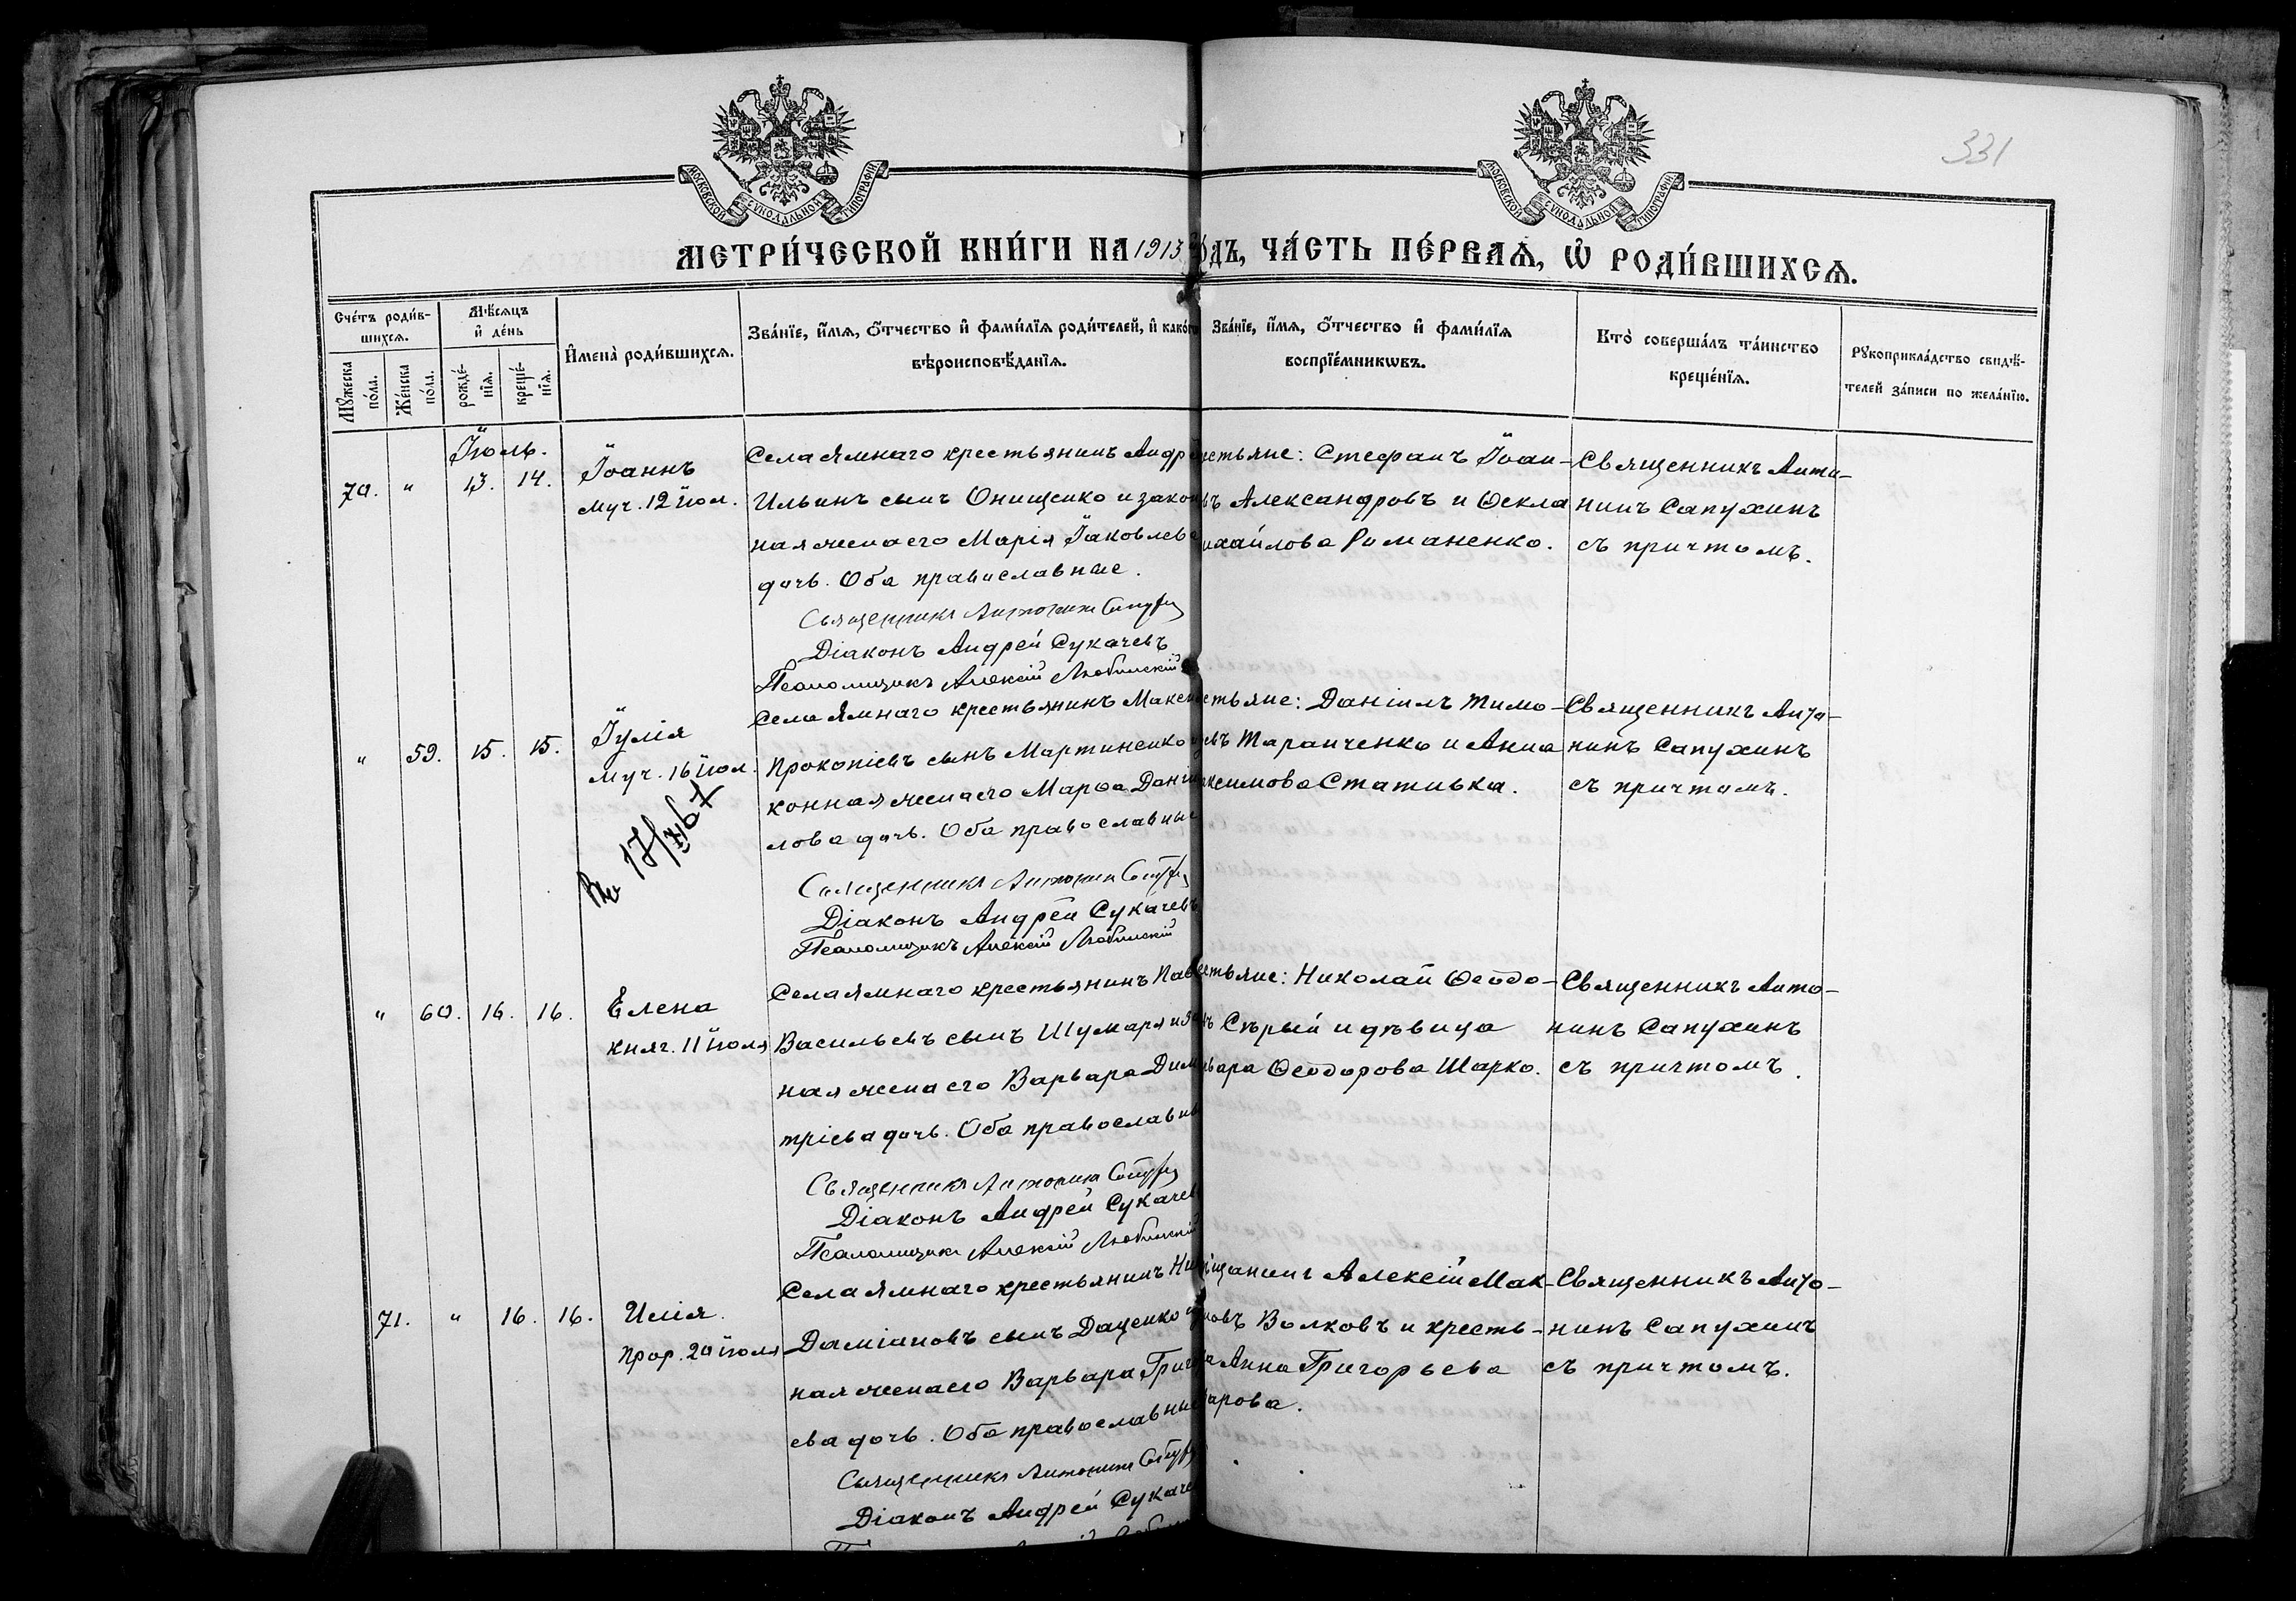 331
МОСКОВСКОЙ СѴНОДАЛЬНОЙ ТИПОГРАФІИ
МОСКОВСКОЙ СѴНОДАЛЬНОЙ ТИПОГРАФІИ
МЕТРИ́ЧЕСКОЙ КНИ́ГИ НА 1913 ГОДЪ, ЧА́СТЬ ПЕ́РВАѦ, Ѡ҆ РОДИ́ВШИХСѦ.
Сче́тъ роди́в-
шихсѧ.
Мꙋ́жеска по́ла.
Же́нска по́ла.
Мѣ́сѧцъ
и҆ де́нь
рожде́-
нїѧ.
креще́-
нїѧ.
И҆мена̀ роди́вшихсѧ.
Зва́нїе, и҆́мѧ, ѻ҆́тчество и҆ фами́лїѧ роди́телей, и҆ како́гѡ
вѣроисповѣ́данїѧ.
Зва́нїе, и҆́мѧ, ѻ҆́тчество и҆ фами́лїѧ
воспрїе́мникѡвъ.
Кто̀ соверша́лъ та́инство
креще́нїѧ.
Рꙋкоприкла́дство свидѣ́-
телей за́писи по жела́нїю.
Іюль.
70. " 13. 14.
Іоаннъ
муч. 12 іюл.
Села Ямнаго крестьянинъ Андрей
Ильинъ сынъ Онищенко и закон
ная жена его Марія Іаковлева
дочь. Оба православные.
Священникъ Антонинъ Сапухин
Діаконъ Андрей Сукачевъ
Псаломщикъ Алексій Любинскій
естьяне: Стефанъ Іоан-
въ Александровъ и Ѳекла
ихайлова Романенко.
Священникъ Анто-
нинъ Сапухинъ
съ причтомъ.
" 59. 15. 15.
Іулія
муч. 16 іюл.
17/VI 67
Села Ямнаго крестьянинъ Макси
Прокопіевъ сынъ Мартиненко и
конная жена его Марѳа Даніи
лова дочь. Оба православные
Священникъ Антонинъ Сапухин
Діаконъ Андрей Сукачевъ
Псаломщикъ Алексій Любинскій
естьяне: Даніилъ Тимо-
евъ Таранченко и Анна
аксимова Стативка.
Священникъ Анто-
нинъ Сапухинъ
съ причтомъ.
" 60. 16. 16.
Елена
княг. 11 іюля
Села Ямнаго крестьянинъ Пав
Васильевъ сынъ Шумара и за
ная жена его Варвара Дим
тріева дочь. Оба православны
Священникъ Антонинъ Сапухин
Діаконъ Андрей Сукачев
Псаломщикъ Алексій Любинскій
естьяне: Николай Ѳеодо-
ъ Сѣрый и дѣвица
вара Ѳеодорова Шарко.
Священникъ Анто-
нинъ Сапухинъ
съ причтомъ.
71. " 16. 16.
Илія.
прор. 20 іюля
Села Ямнаго крестьянинъ Ни
Даміановъ сынъ Даценко и
ная жена его Варвара Григо
ева дочь. Оба православные
Священникъ Антонинъ Сапухин
Діаконъ Андрей Сукаче
щанинъ Алексій Мак-
мовъ Волковъ и кресть-
а Анна Григорьева
арова.
Священникъ Анто-
нинъ Сапухинъ
съ причтомъ.